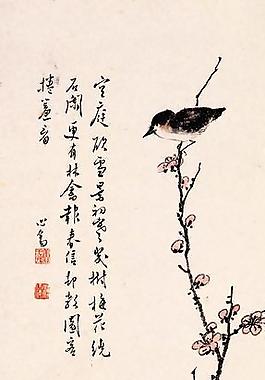 空庭欲雪景初寒幾樹梅花繞
石闌更有林禽報春信却教圖畫
捲簾看
心畬